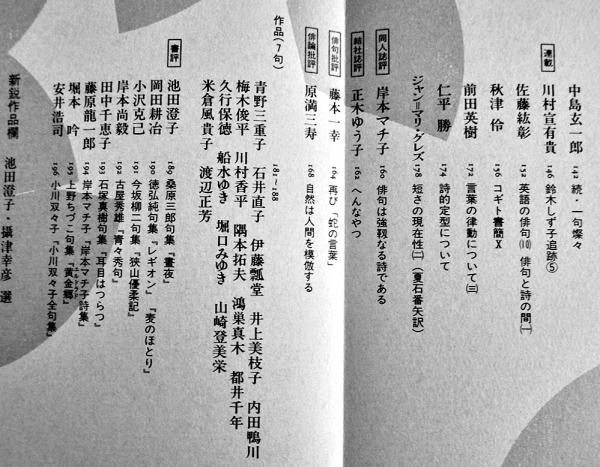 連載
中島玄一郎 142 続・一句燦々
川村宣有貴 146 鈴木しず子追跡⑤
佐藤紘彰 152 英語の俳句⑽ 俳句と詩の間㈠
秋津 伶 156 コギト書簡Ⅹ
前田英樹 172 言葉の律動について㈢
仁平 勝 174 詩的定型について
ジャン=マリ・グレズ 178 短さの現在性㈡(夏石番矢訳)
同人誌評
岸本マチ子 160 俳句は強靱なる詩である
結社誌評
正木ゆう子 162 へんなやつ
俳句批評
藤本一幸 164 再び「蛇の言葉」
俳論批評
原満三寿 168 自然は人間を模倣する
作品(7句) 181〜188
青野三重子 石井直子 伊藤瓢堂 井上美枝子 内田鴨川
梅木俊平 川村香平 隅本拓夫 鴻巣真木 都井千年
久行保徳 船水ゆき 堀口みゆき 山崎登美栄
米倉風貴子 渡辺正芳
書評
池田澄子 189 桑原三郎句集『晝夜』
岡田耕治 190 徳弘純句集『レギオン』『麦のほとり』
小沢克己 191 今坂柳二句集『狭山優柔記』
岸本尚毅 192 古屋秀雄『青々秀句』
田中千恵子 193 石塚真樹句集『耳目はつらつ』
藤原龍一郎 194 岸本マチ子『岸本マチ子詩集』
堀本 吟 195 上野ちづこ句集『黄金郷』
安井浩司 196 小川双々子『小川双々子全句集』
新鋭作品欄 池田澄子・攝津幸彦 選